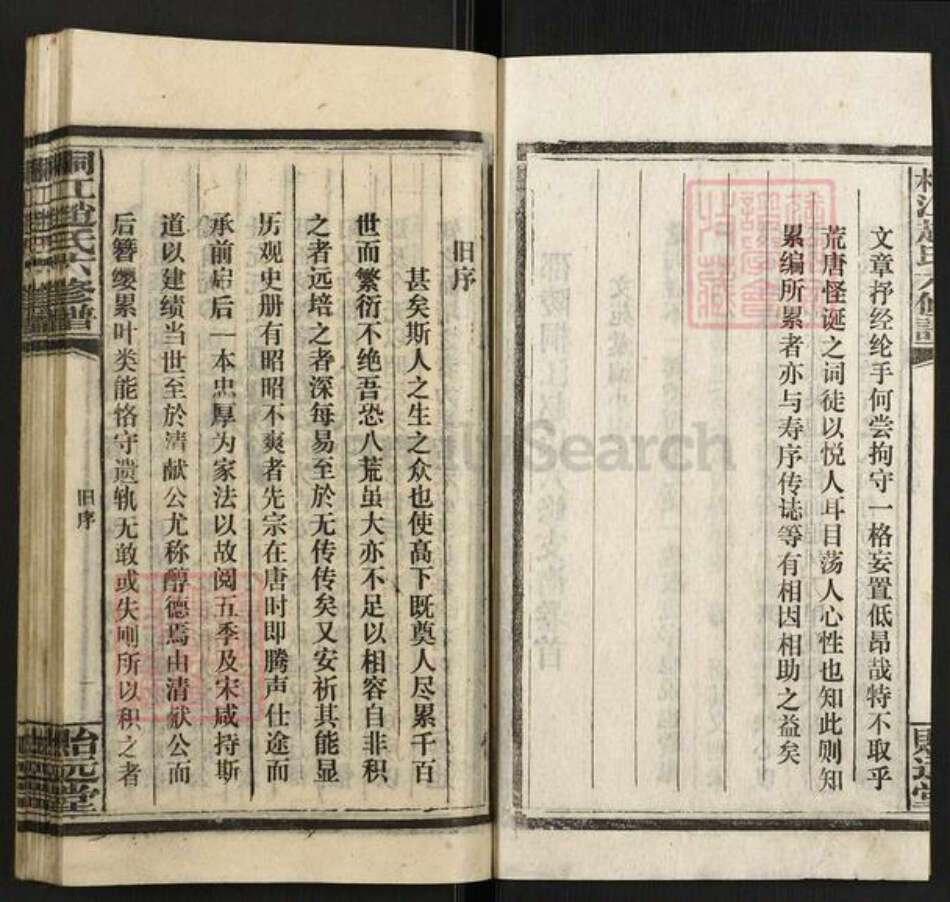 文章抒经纶手何尝拘守一格妄置低昂哉特不取乎
荒唐怪诞之词徒以悦人耳目荡人心性也知此则知
累编所累者亦与寿序传诔等有相因相助之益矣
旧序
甚矣斯人之生之众也使高下既奠人尽累千百
世而繁衍不绝吾恐八荒虽大亦不足以相容自非积
之者远培之者深每易至於无传传矣又安祈其能显
历观史册有昭昭不爽者先宗在唐时即腾声仕途而
承前启后一本忠厚为家法以故阅五季及宋咸持斯
道以建绩当世至於清献公尤称醇德焉由清献公而
后簪缨累叶类能恪守遗轨无敢或失则所以积之者
旧序
一
桐江赵氏六修谱
贻远堂
Search